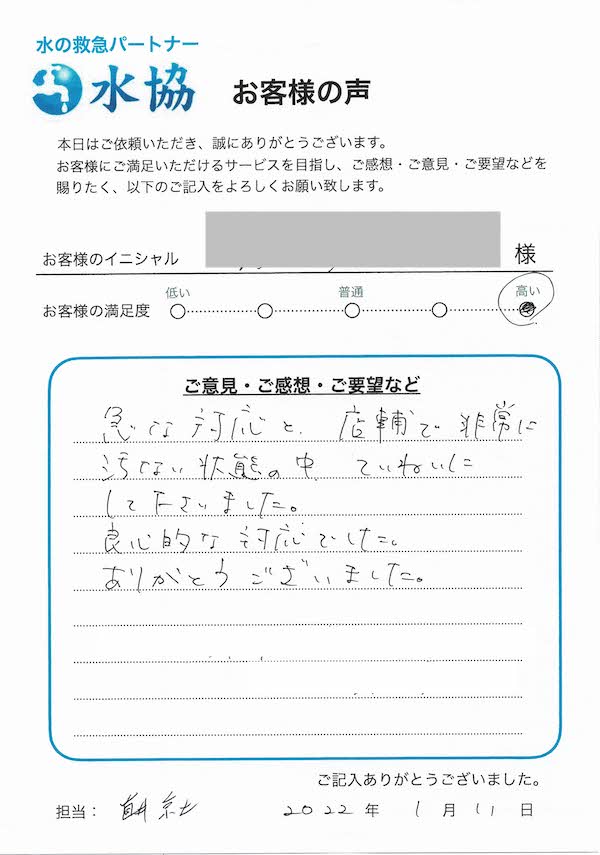 水の救急パートナー
水協
お客様の声
本日はご依頼いただき、誠にありがとうございます。
お客様にご満足いただけるサービスを目指し、ご感想・ご意見・ご要望などを
賜りたく、以下のご記入をよろしくお願い致します。
お客様のイニシャル 様
低い 普通 高い
お客様の満足度
ご意見・ご感想・ご要望など
急な対応と、店輔で非常に
汚ない状態の中、ていねいに
して下さいました。
良心的な対応でした。
ありがとうございました。
ご記入ありがとうございました。
担当: 2022年 1月 11日